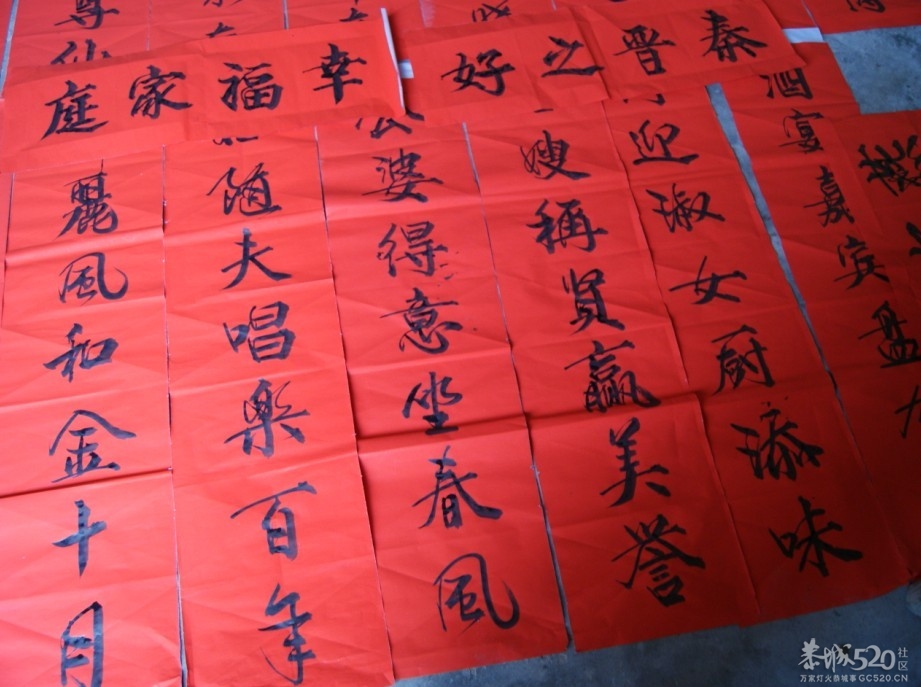 幸福家庭
秦晋之好
麗風和金十月
随夫唱樂百年
婆得意坐春風
嫂稱贤赢美誉
迎淑女厨添味
酒宴嘉宾盘
尊仙
恭城520社区
万家灯火恭城事GC520.CN